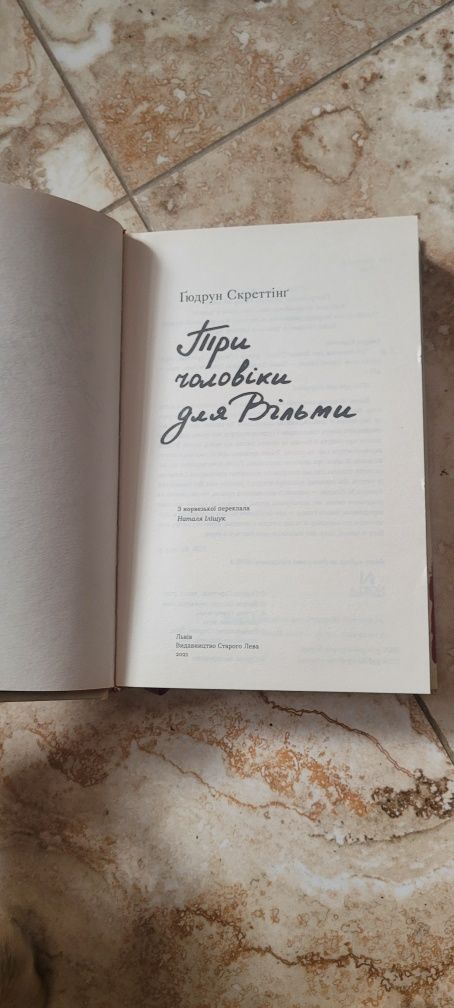 Ґюдрун Скреттінґ
Три
чоловіки
для Вільми
З норвезької переклала
Наталя Іліщук
Львів
Видавництво Старого Лева
2021